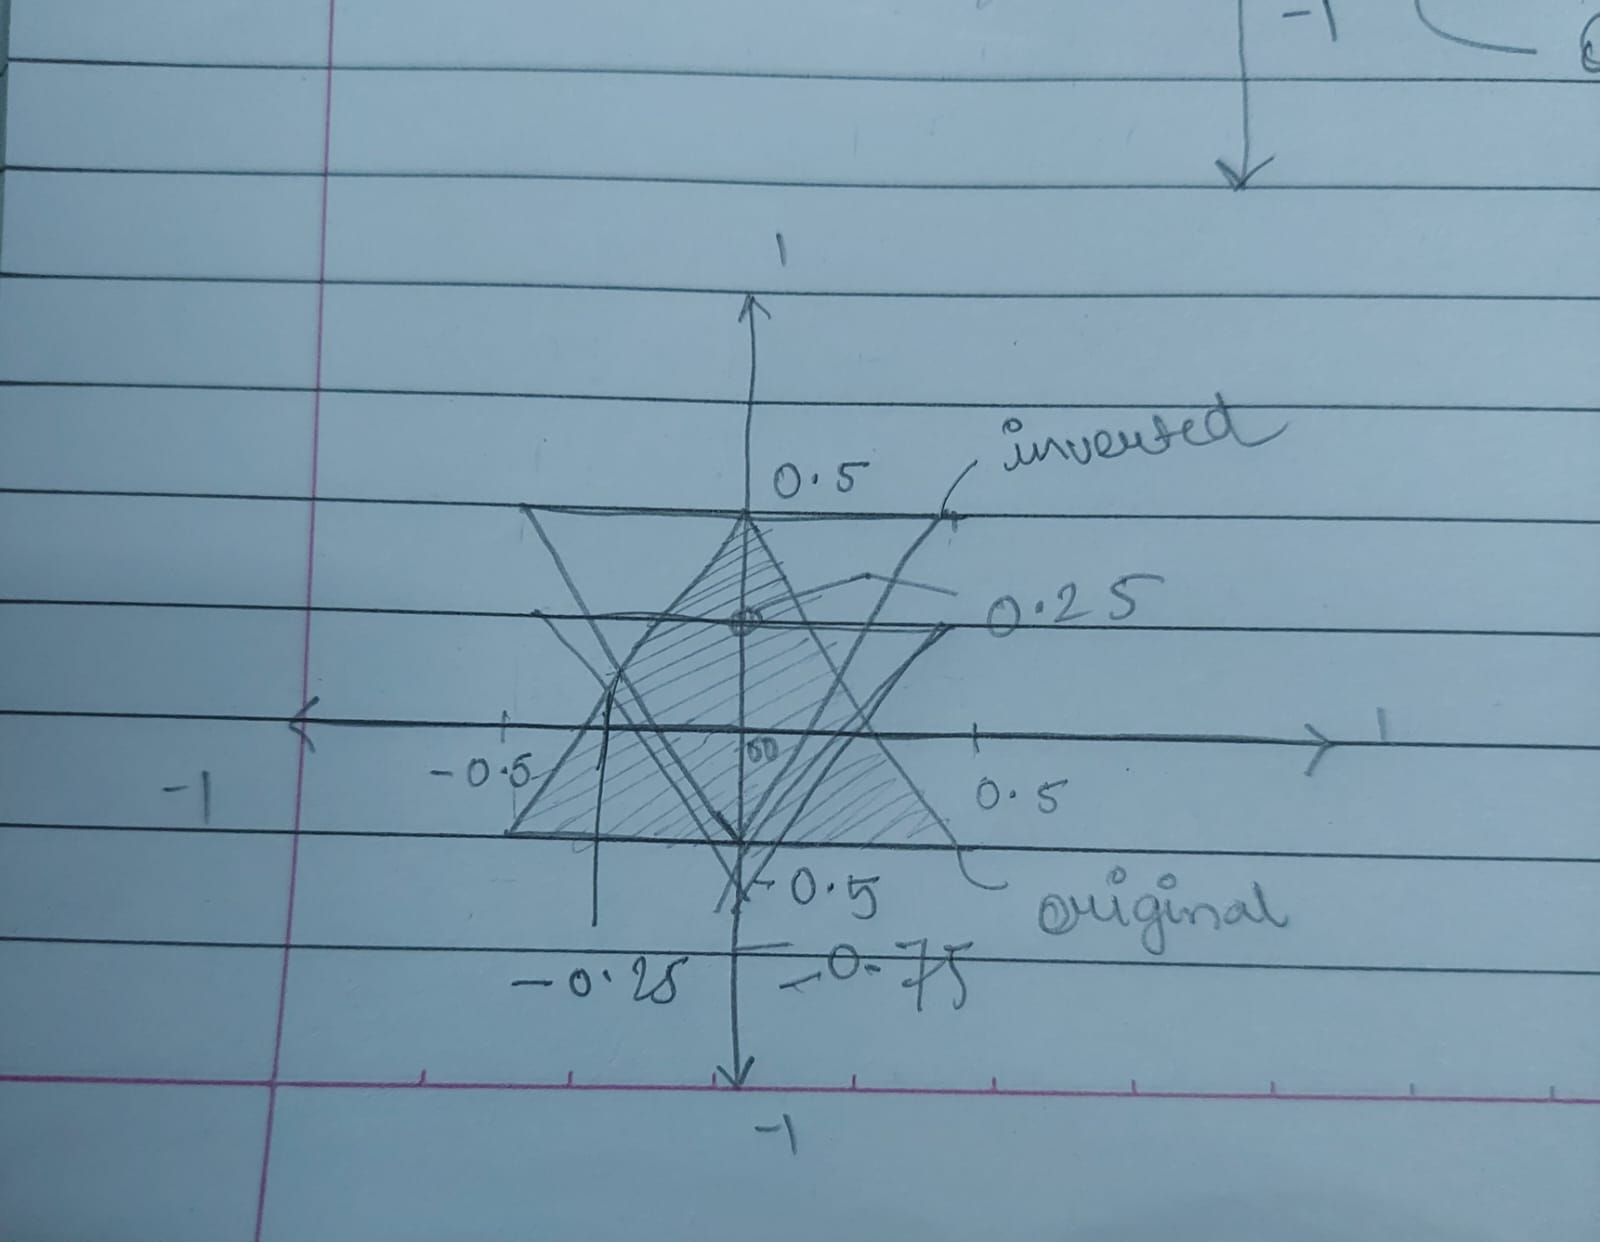 -1
1
inverted
0.5
0.25
1
-0.5
-1
0.5
-0.5
original
-0.25
-0.75
-1